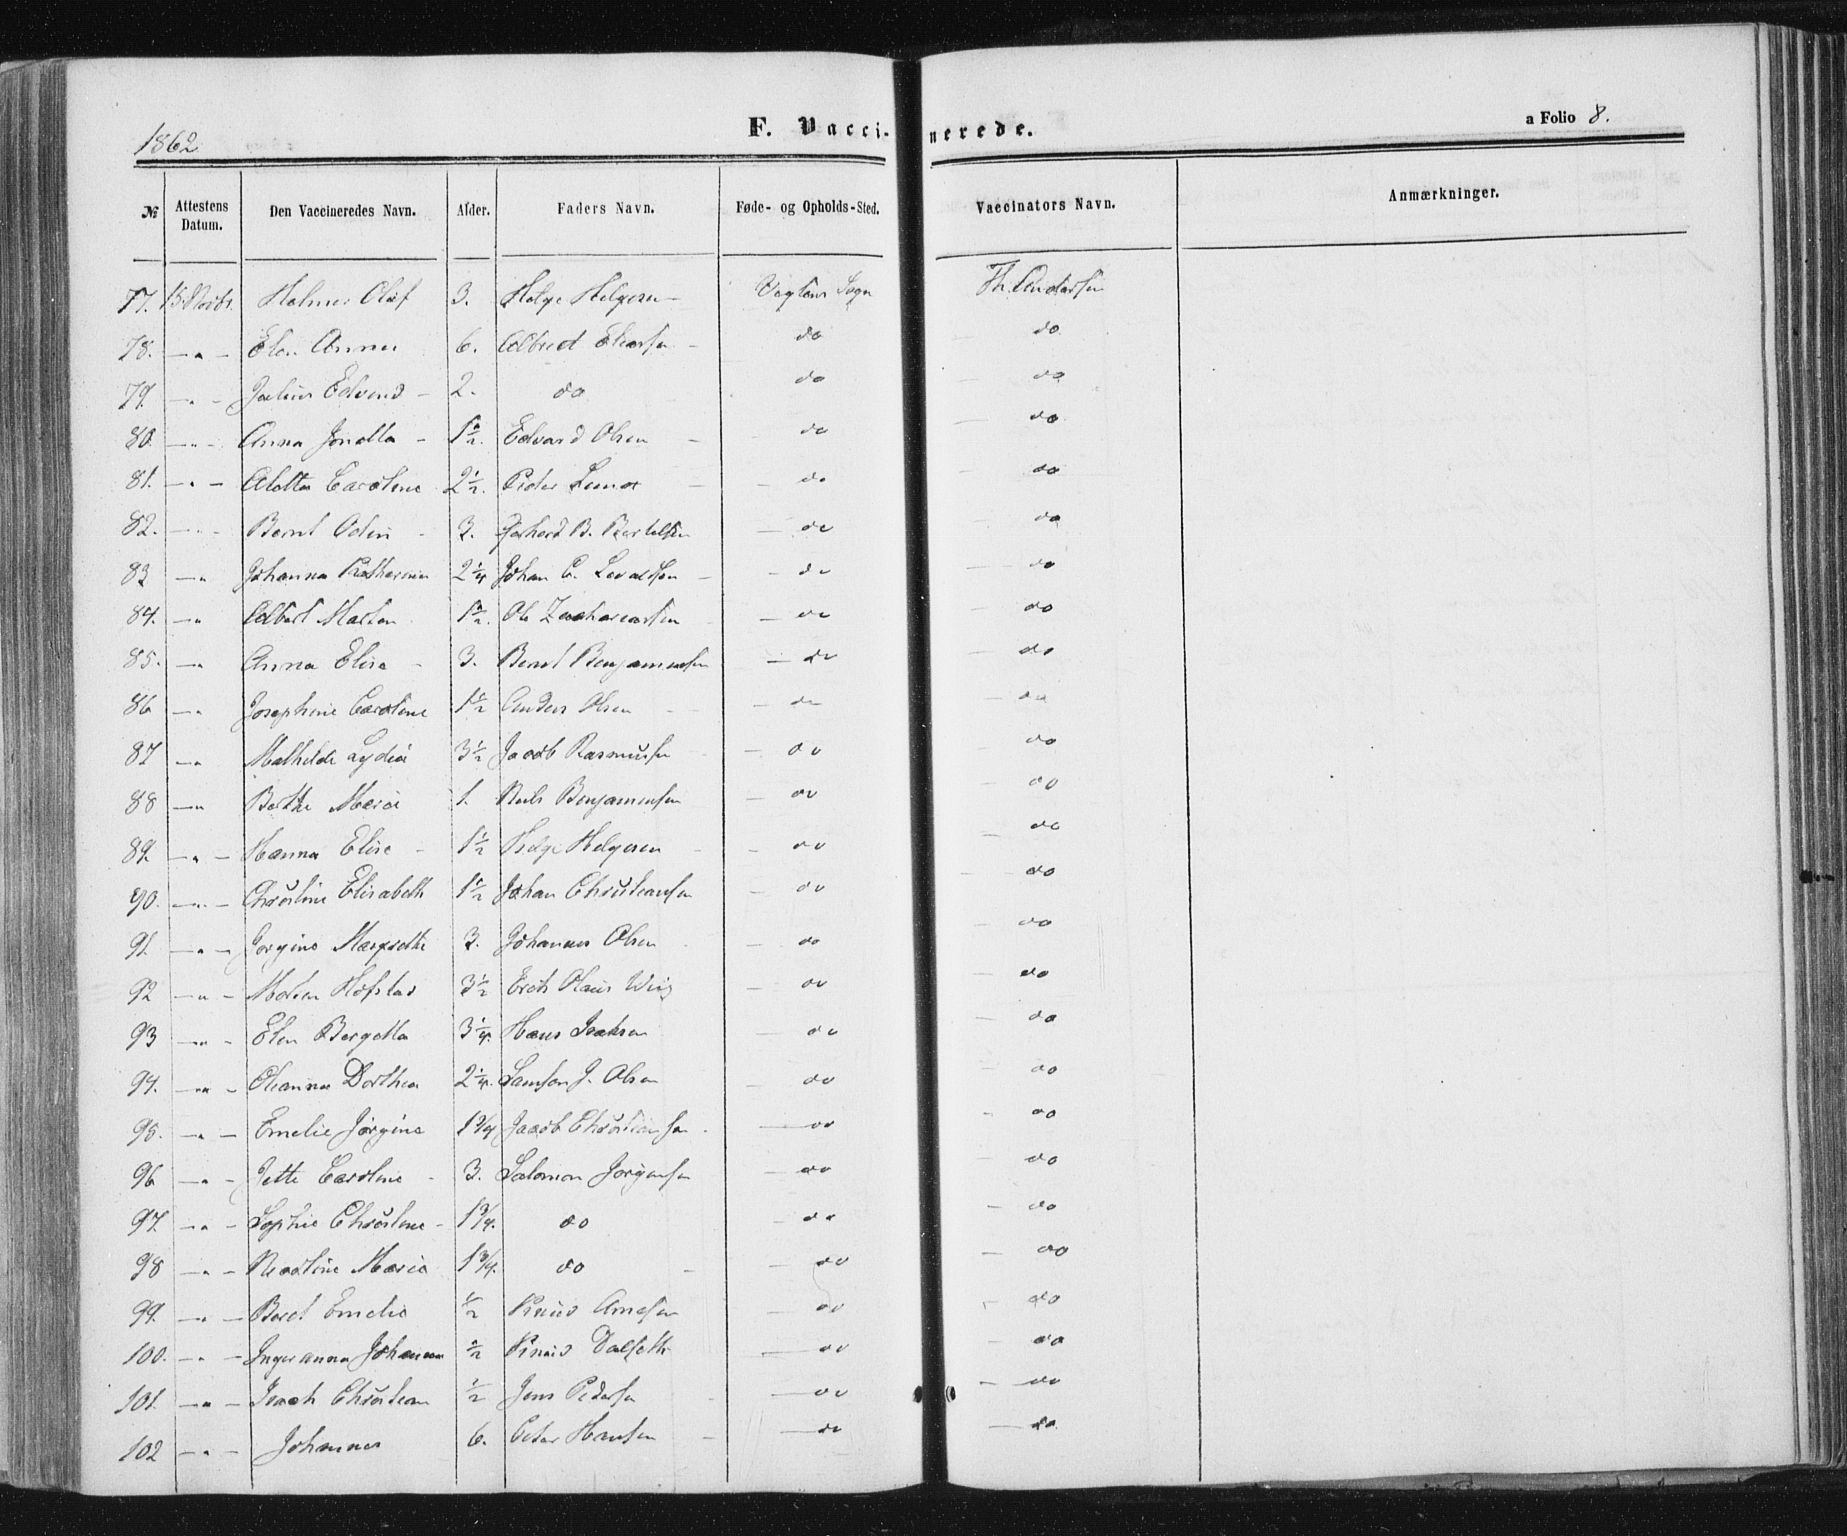 1862
F. Vacci-nerede.
a Folio 8.
№ Attestens Datum. Den Vaccineredes Navn. Alder. Faders Navn. Føde- og Opholds-Sted. Vaccinators Navn. Anmærkninger.
77. 15 Novbr. Olaf 3. Helge Helgesen Sogn Th. Andersen
78. — " — Elen Anna 6. Albrect Eliassen do do
79. " Julius Edvard 2. do do do
80. " Anna Jonetta 1½. Edvard Olsen do do
81. — " — Aletta Caroline 2½. Peder Lund do do
82. " Bernt Odin 3. B. Bertelsen do do
83 — " Johanna Katharina 2¼ Johan C. do do
84. — " Albert Martin 1½. Ole Zachariassen do do
85. — " Anna Elise 3. Bernt Benjaminsen do do
86 — " Josephine Caroline 1½ Anders Olsen do do
87 — " Mathilde Lydia 3½ Jacob Rasmussen do do
88 — " Berthe Maria 1. Nils Benjaminsen do do
89. — " — Hanna Elise 1½ Helge Helgesen do do
90. — " — Christine Elisabeth 1½ Johan Christiansen do do
91. — " — Jorgine Margrethe 3. Johannes Olsen do do
92 — " — Hofstad 3½ Olaus Wiig do do
93 — " — Elen Bergetta 3¼. Hans Isaksen do do
94. — " — Oleanna Dorthea 2¼. Samson J. Olsen do do
95. — " — Emelie Jørgine 1¾ Jacob Christiansen do do
96 — " — Jette Caroline 3. Salomon Jørgensen do do
97. — " — Sophie Christine 1¾. do do do
98 — " — Maria 1¾. do do do
99. — " — Beret Emelie ½ Arnesen do do
100. — " — Ingeranna Johanna ½ Dalseth do do
101. — " — Isach Christian ½ Jens Pedersen do do
102 — " — Johannes 6. Peter Hansen do do